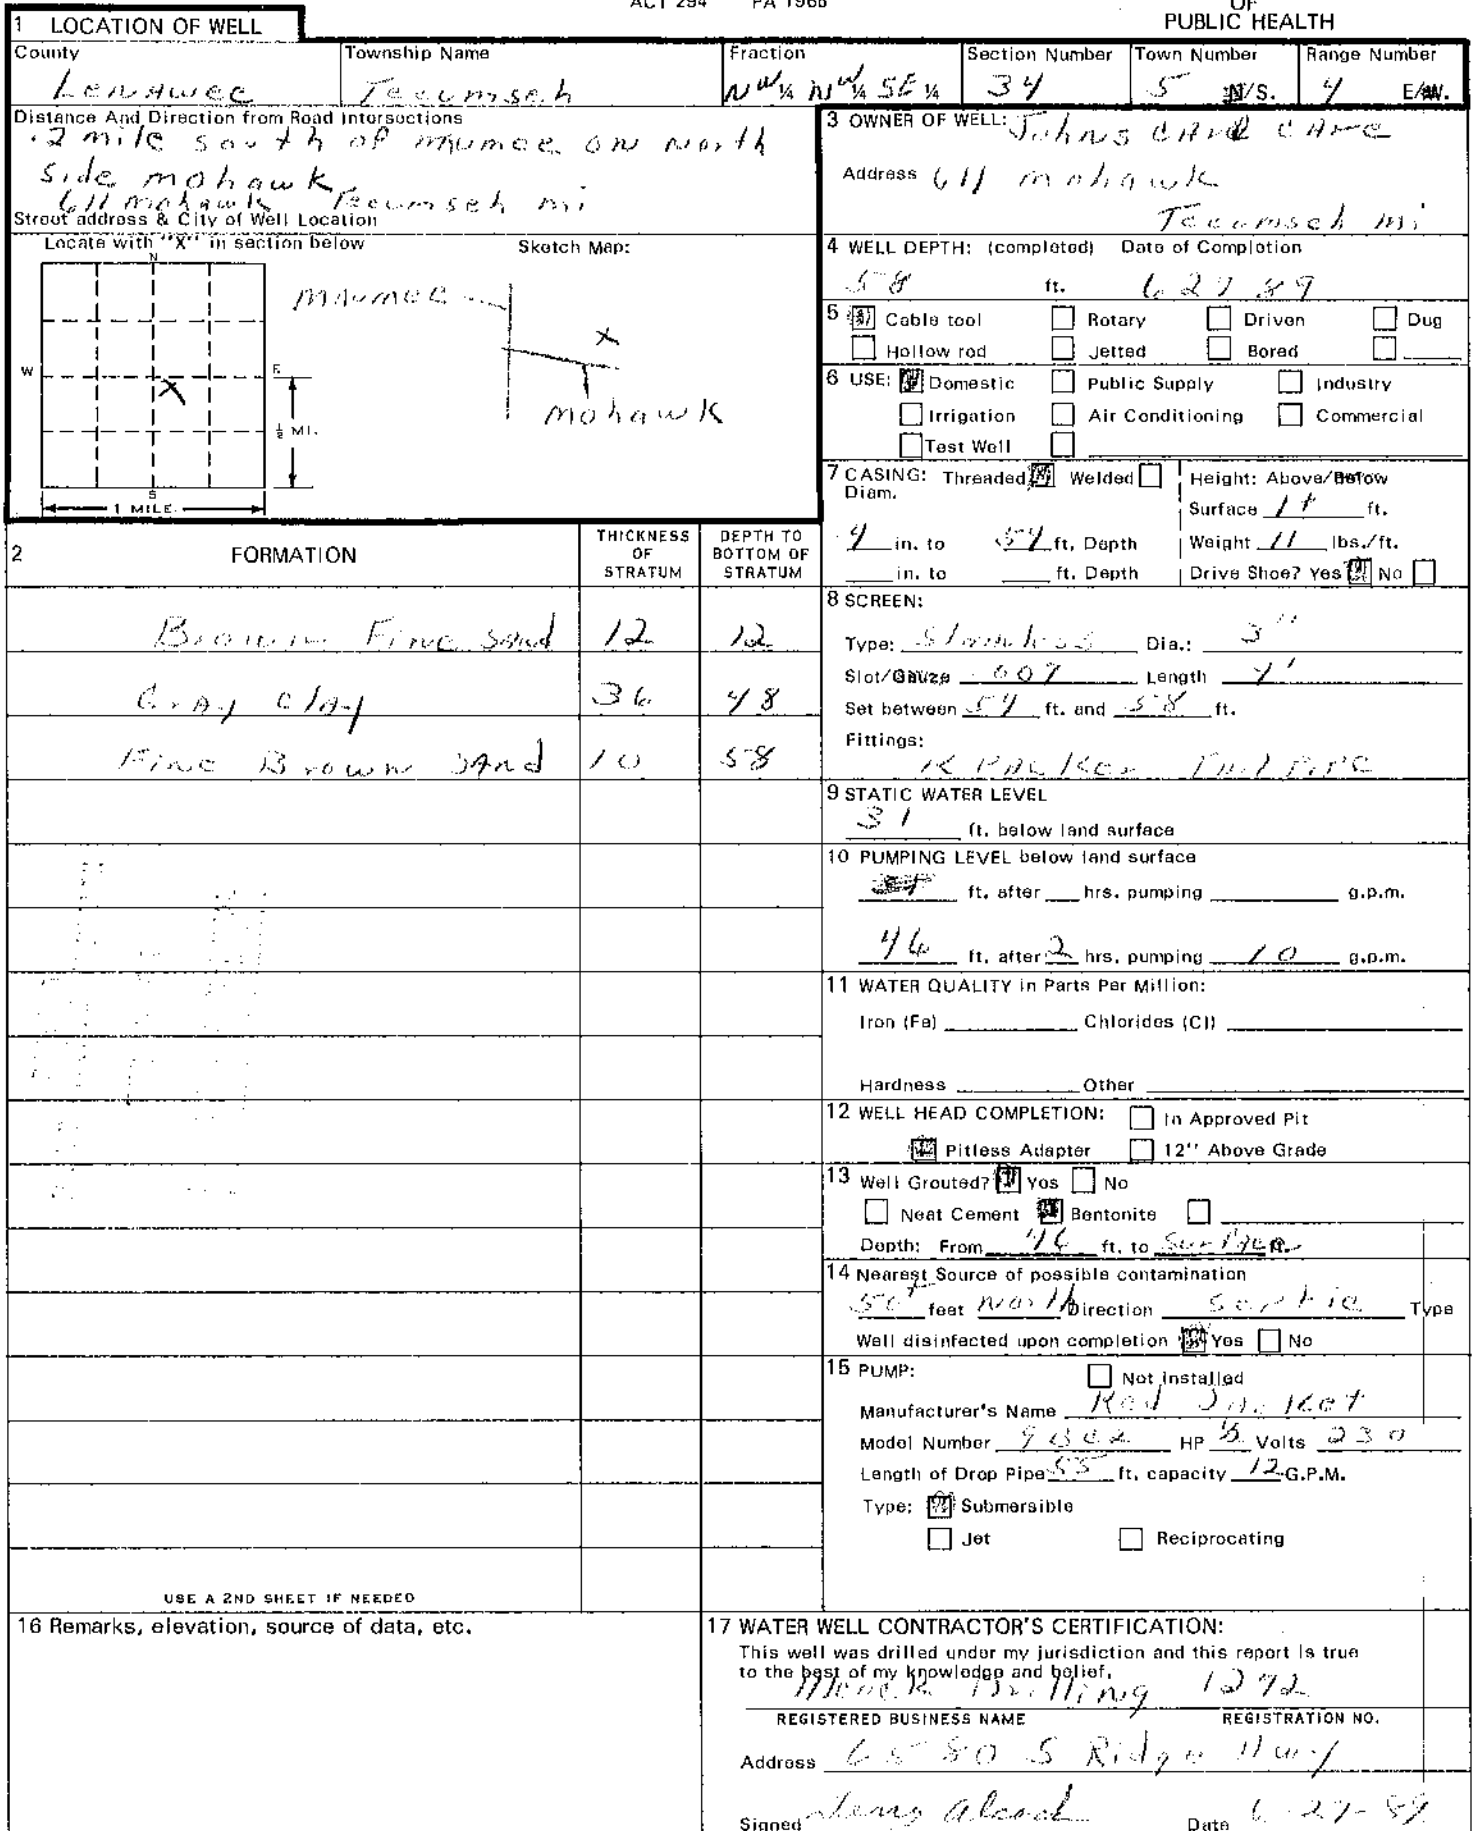 ACT 294 PA 1965
OF
PUBLIC HEALTH
1 LOCATION OF WELL
County Township Name Fraction Section Number Town Number Range Number
Lenawee Tecumseh NW¼ NW¼ SE¼ 34 5 N/S. 4 E/W.
Distance And Direction from Road Intersections
.2 mile south of mumee on north
side mohawk
611 mohawk Tecumseh mi
Street address & City of Well Location
Locate with "X" in section below
Sketch Map:
N
W
E
S
½ MI.
1 MILE
X
maumee
X
mohawk
3 OWNER OF WELL: Johns
Address 611 mohawk
Tecumseh mi
4 WELL DEPTH: (completed) Date of Completion
58 ft. 6 27 89
5 Cable tool Rotary Driven Dug
Hollow rod Jetted Bored
6 USE: Domestic Public Supply Industry
Irrigation Air Conditioning Commercial
Test Well
7 CASING: Threaded Welded Height: Above/Below
Diam.
Surface 1+ ft.
4 in. to 54 ft. Depth Weight 11 lbs./ft.
in. to ft. Depth Drive Shoe? Yes No
2 FORMATION THICKNESS OF STRATUM DEPTH TO BOTTOM OF STRATUM
Brown Fine Sand 12 12
Gray Clay 36 48
Fine Brown Sand 10 58
USE A 2ND SHEET IF NEEDED
8 SCREEN:
Type: Stainless Dia.: 3"
Slot/Gauze 007 Length 4'
Set between 54 ft. and 58 ft.
Fittings:
K Packer Tail Pipe
9 STATIC WATER LEVEL
31 ft. below land surface
10 PUMPING LEVEL below land surface
ft. after hrs. pumping g.p.m.
46 ft. after 2 hrs. pumping 10 g.p.m.
11 WATER QUALITY in Parts Per Million:
Iron (Fe) Chlorides (Cl)
Hardness Other
12 WELL HEAD COMPLETION: In Approved Pit
Pitless Adapter 12" Above Grade
13 Well Grouted? Yes No
Neat Cement Bentonite
Depth: From 46 ft. to Surface ft.
14 Nearest Source of possible contamination
50+ feet North Direction Septic Type
Well disinfected upon completion Yes No
15 PUMP: Not installed
Manufacturer's Name Red Jacket
Model Number HP ½ Volts 230
Length of Drop Pipe 55 ft. capacity 12 G.P.M.
Type: Submersible
Jet Reciprocating
16 Remarks, elevation, source of data, etc.
17 WATER WELL CONTRACTOR'S CERTIFICATION:
This well was drilled under my jurisdiction and this report is true
to the best of my knowledge and belief.
Drilling 1272
REGISTERED BUSINESS NAME REGISTRATION NO.
Address 6580 S Ridge Hwy
Signed Date 6-27-89